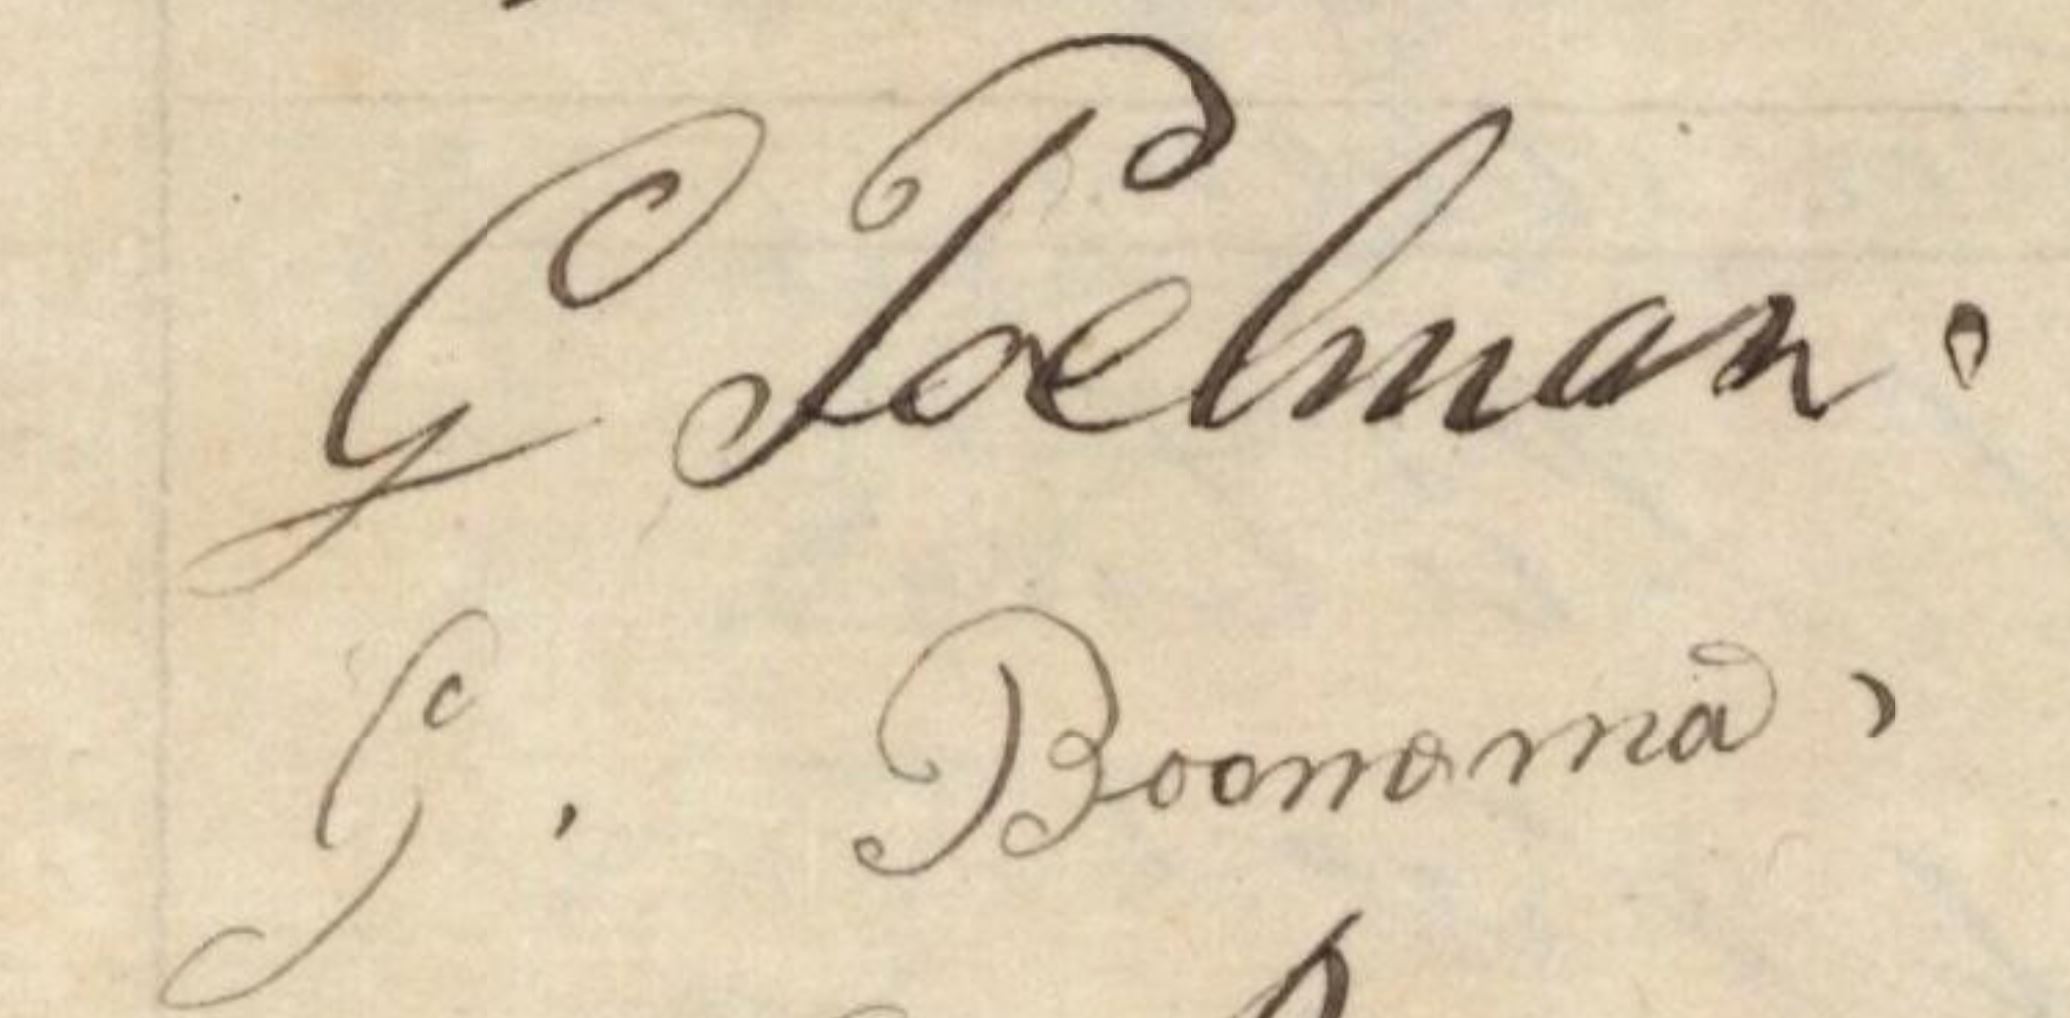 G Poelman.
G. Boonoma,